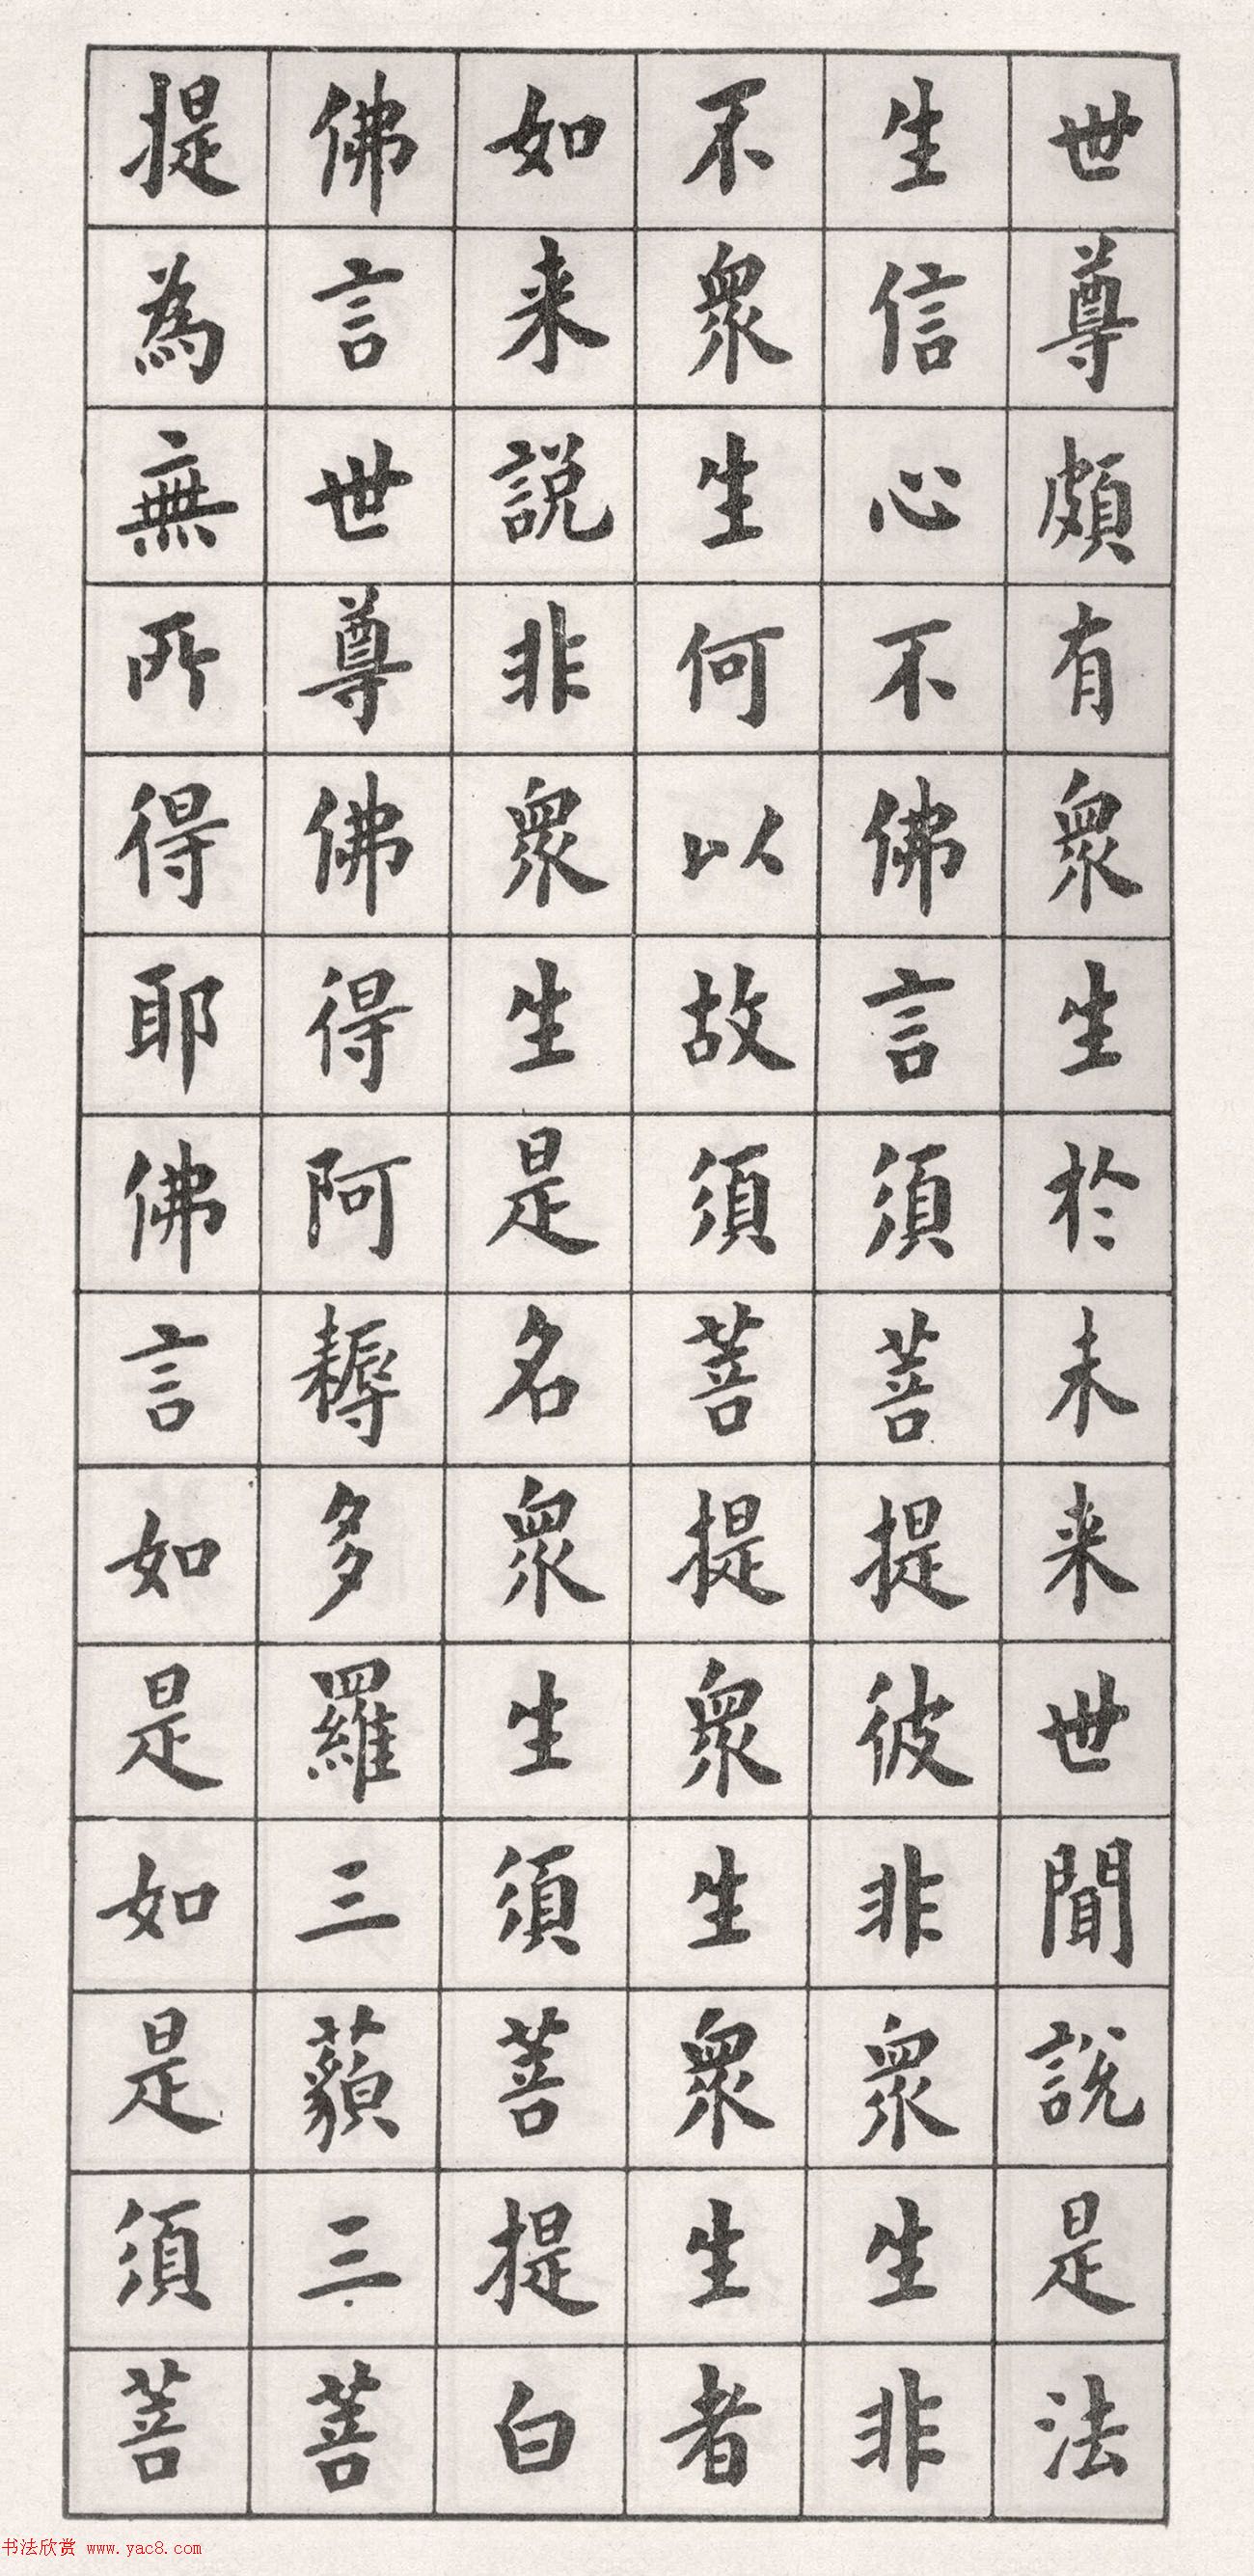 世尊頗有衆生於未来世聞說是法
生信心不佛言須菩提彼非衆生非
不衆生何以故須菩提衆生衆生者
如来説非衆生是名衆生須菩提白
佛言世尊佛得阿耨多羅三藐三菩
提為無所得耶佛言如是如是須菩
书法欣赏 www.yac8.com